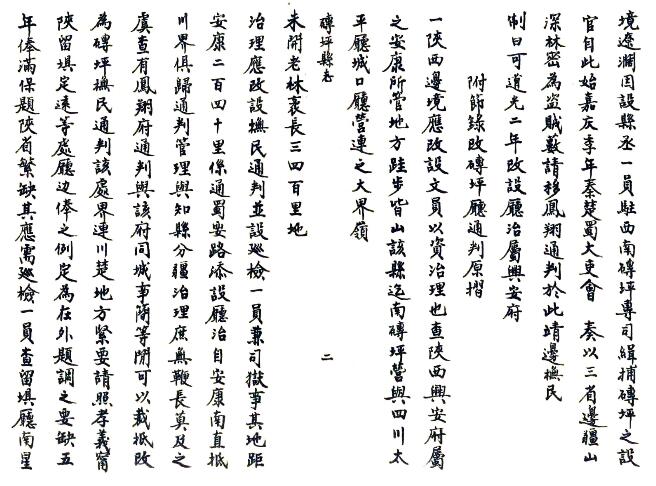 境遼闊因設縣丞一員駐西南磚坪專司緝捕磚坪之設
官自此始嘉庆季年秦楚蜀大吏會 奏以三省邊疆山
深林密為盜賊藪請移鳳翔通判於此靖邊撫民
制曰可道光二年改設廳治屬興安府
附節錄改磚坪廳通判原摺
一陝西邊境應改設文員以資治理也查陝西興安府屬
之安康所管地方跬步皆山該縣迄南磚坪營與四川太
平廳城口廳營連之大界嶺
磚坪縣志
二
未開老林袤長三四百里地
治理應改設撫民通判並設巡檢一員兼司獄事其地距
安康二百四十里係通蜀要路添設廳治自安康南直抵
川界俱歸通判管理與知縣分疆治理庶無鞭長莫及之
虞查有鳳翔府通判與該府同城事簡等閒可以裁抵改
為磚坪撫民通判該處界連川楚地方緊要請照孝義甯
陝留垻定遠等處廳边俸之例定為在外題調之要缺五
年俸滿保題陝省繁缺其應需巡檢一員查留垻廳南星